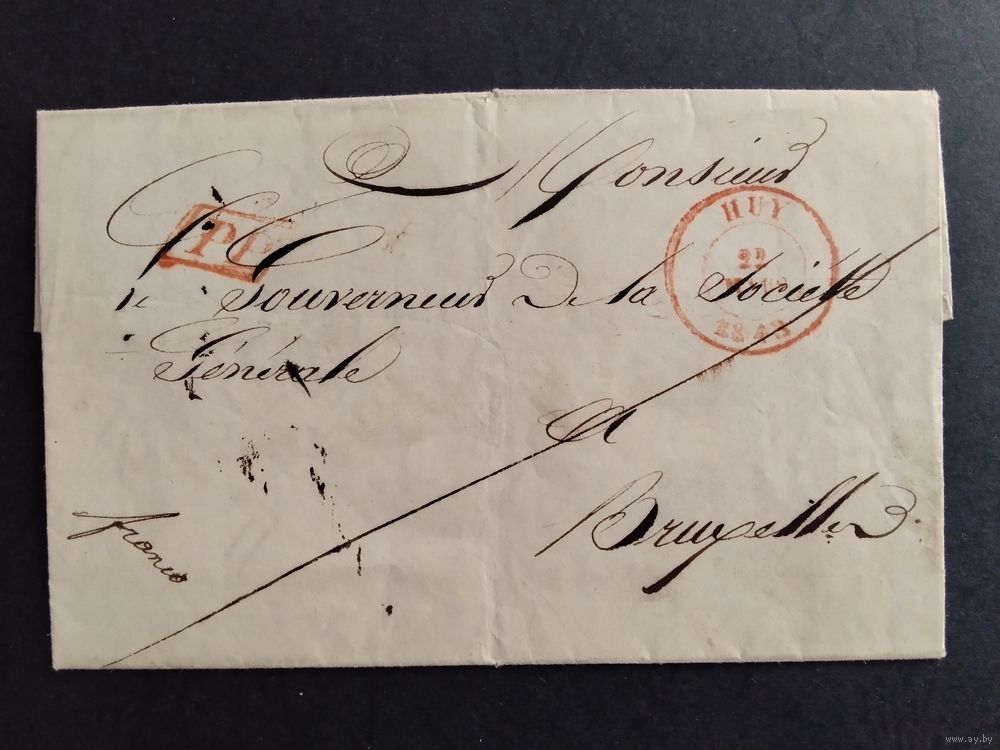 Monsieur
PP
HUY
22
1843
Le Gouverneur De la Société
Générale
A
Bruxelles
franco
www.ay.by